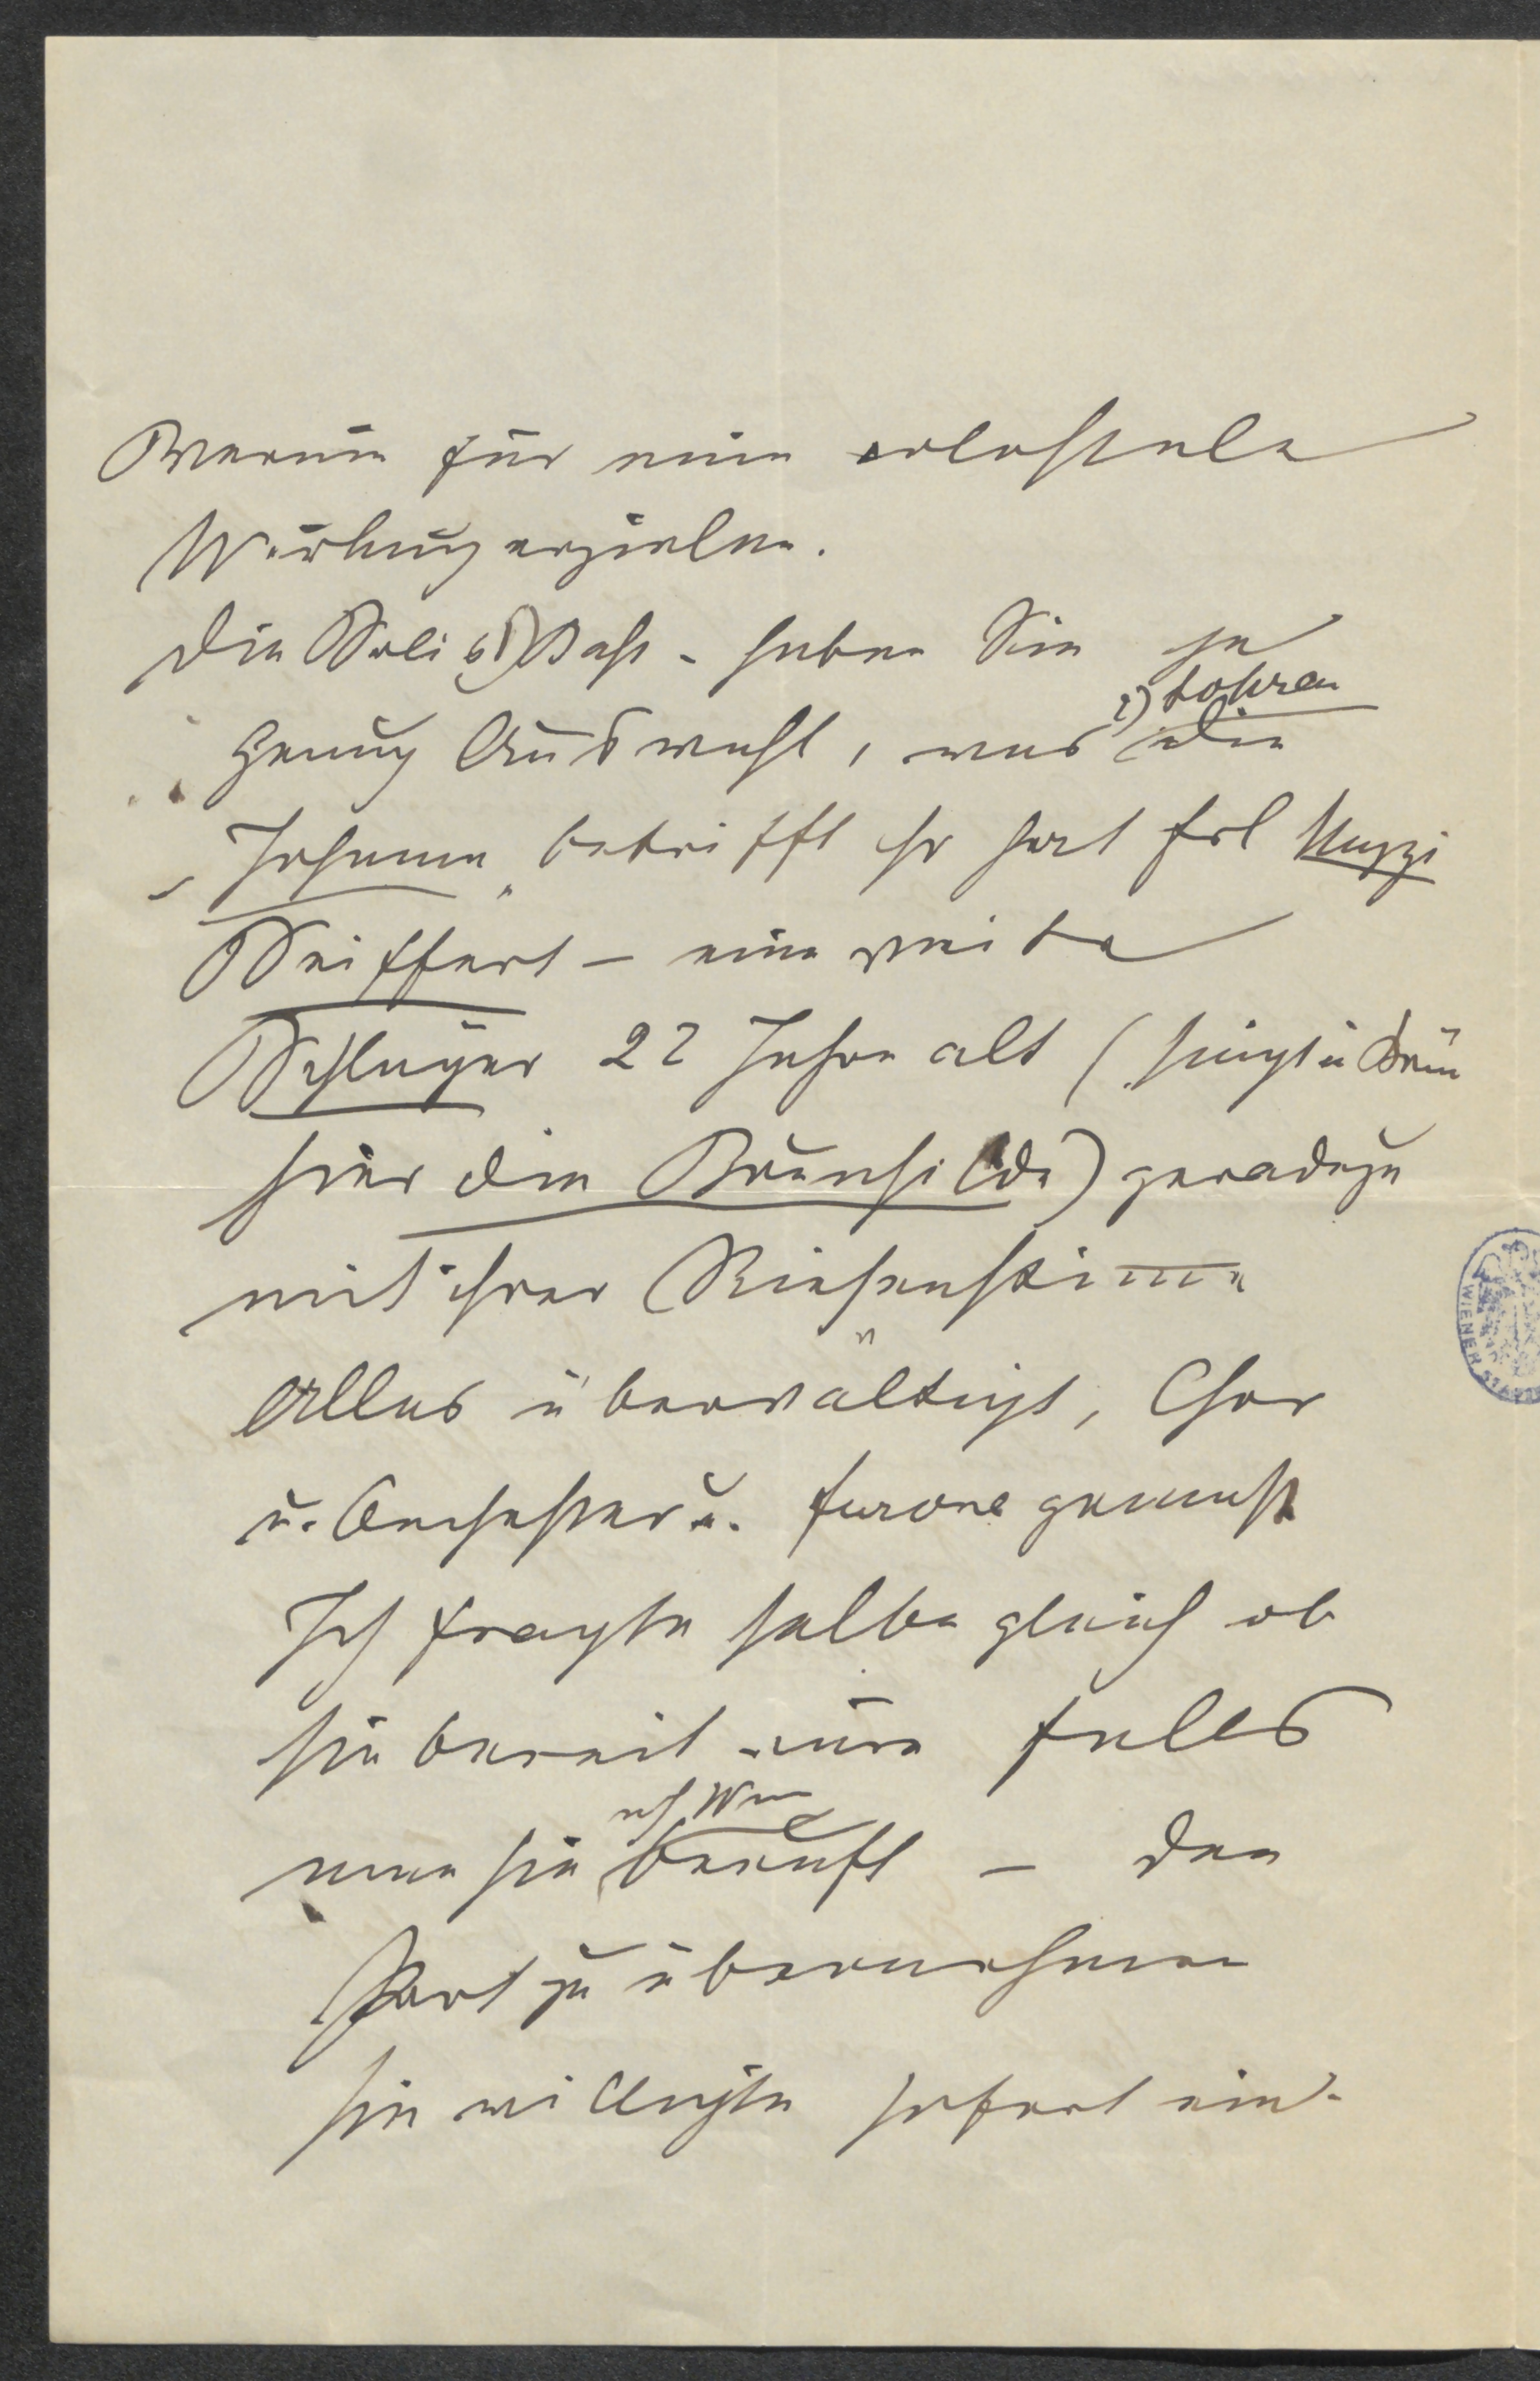 für eine colossale
Wirkung erzielen.
Die Soli 1) Bass - haben Sie ja
genug Auswahl, was 2) Sopran die
„Johanna" betrifft so hat Frl Mizzi
Seiffert – eine zweite
Schläger 22 Jahre alt (singt u Brün
hier die Brünhilde) geradezu
mit ihrer Riesenstimme
Alles überwältigt, Chor
u. Orchester u. furore gemacht
Ich fragte selbe gleich ob
sie bereit wäre falls
man sie nach Wien beruft – den
Part zu übernehmen
sie willigte sofort ein.
WIENER STADT